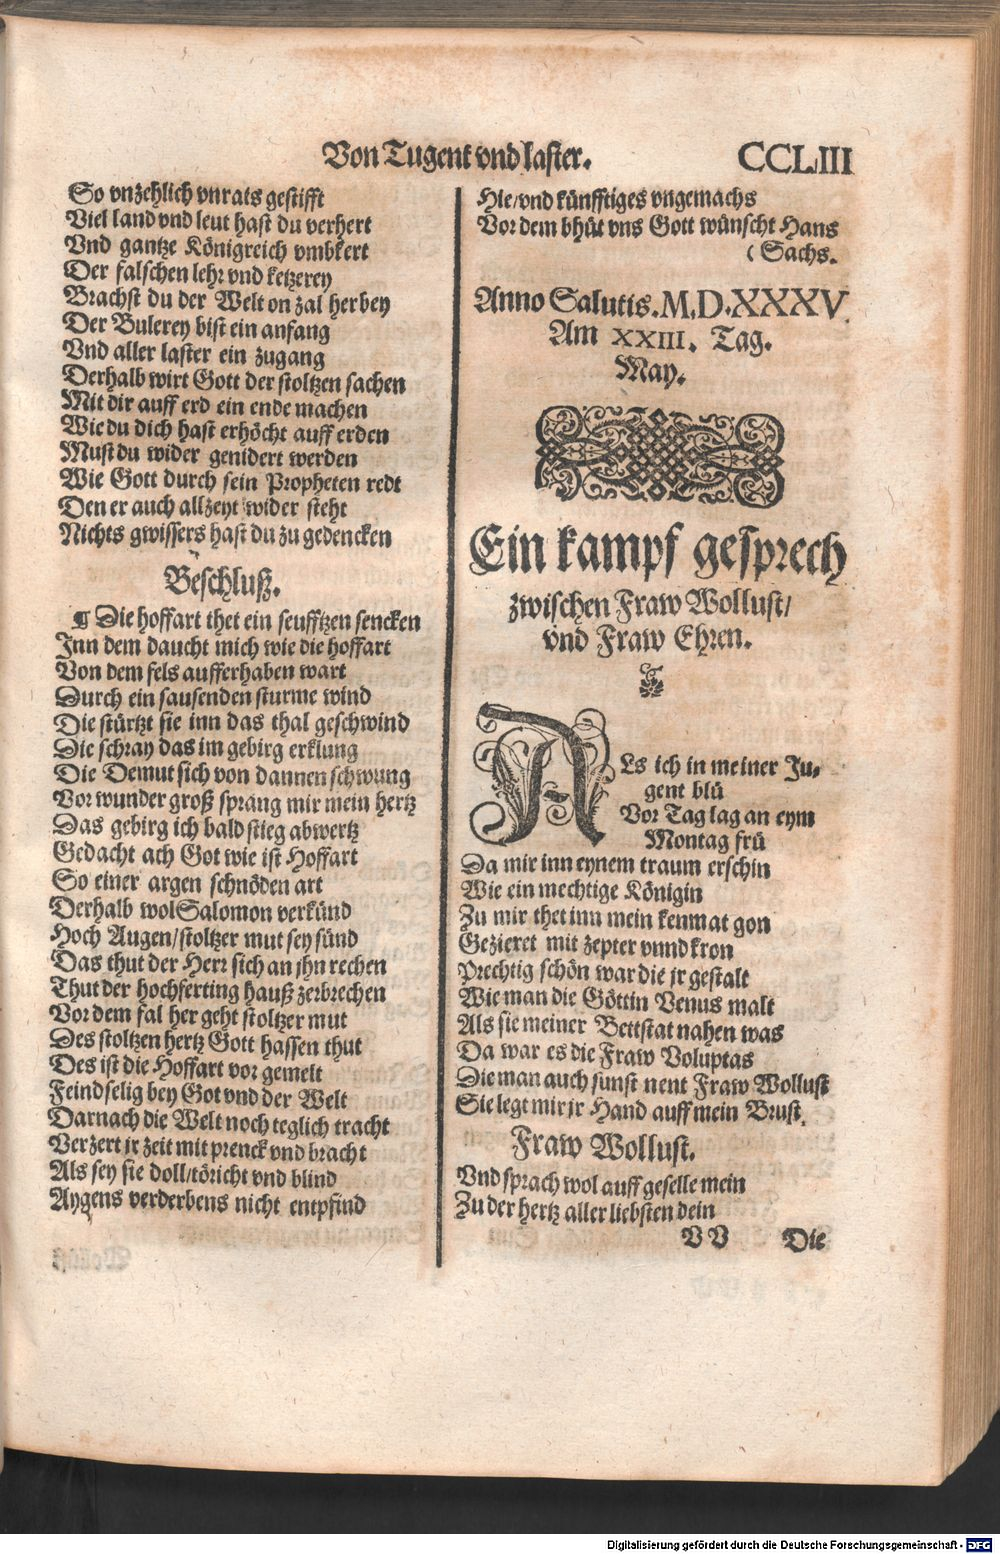 Von Tugent vnd laster.
CCLIII
So vnzehlich vnrats gestifft
Viel land vnd leut hast du verhert
Vnd gantze Königreich vmbkert
Der falschen lehr vnd ketzerey
Brachst du der Welt on zal herbey
Der Bulerey bist ein anfang
Vnd aller laster ein zugang
Derhalb wirt Gott der stoltzen sachen
Mit dir auff erd ein ende machen
Wie du dich hast erhöcht auff erden
Must du wider genidert werden
Wie Gott durch sein Propheten redt
Den er auch allzeyt wider steht
Nichts gwissers hast du zu gedencken
Beschluß.
¶ Die hoffart thet ein seufftzen sencken
Inn dem daucht mich wie die hoffart
Von dem fels aufferhaben wart
Durch ein sausenden sturme wind
Die stürtzt sie inn das thal geschwind
Die schray das im gebirg erklung
Die Demut sich von dannen schwung
Vor wunder groß sprang mir mein hertz
Das gebirg ich bald stieg abwertz
Gedacht ach Got wie ist Hoffart
So einer argen schnöden art
Derhalb wol Salomon verkünd
Hoch Augen/stoltzer mut sey sünd
Das thut der Herr sich an jhn rechen
Thut der hochferting hauß zerbrechen
Vor dem fal her geht stoltzer mut
Des stoltzen hertz Gott hassen thut
Des ist die Hoffart vor gemelt
Feindselig bey Got vnd der Welt
Darnach die Welt noch teglich tracht
Verzert jr zeit mit prenck vnd bracht
Als sey sie doll/töricht vnd blind
Aygens verderbens nicht entpfind
Hie/vnd künfftiges vngemachs
Vor dem bhüt vns Gott wünscht Hans
(Sachs.
Anno Salutis.M.D.XXXV.
Am XXIII. Tag.
May.
Ein kampf gesprech
zwischen Fraw Wollust/
vnd Fraw Ehren.
ALs ich in meiner Ju-
gent blü
Vor Tag lag an eym
Montag frü
Da mir inn eynem traum erschin
Wie ein mechtige Königin
Zu mir thet inn mein kemnat gon
Gezieret mit zepter vnnd kron
Prechtig schön war die jr gestalt
Wie man die Göttin Venus malt
Als sie meiner Bettstat nahen was
Da war es die Fraw Voluptas
Die man auch sunst nent Fraw Wollust
Sie legt mir jr Hand auff mein Brust.
Fraw Wollust.
Vnd sprach wol auff geselle mein
Zu der hertz aller liebsten dein
VV Die
Digitalisierung gefördert durch die Deutsche Forschungsgemeinschaft - DFG